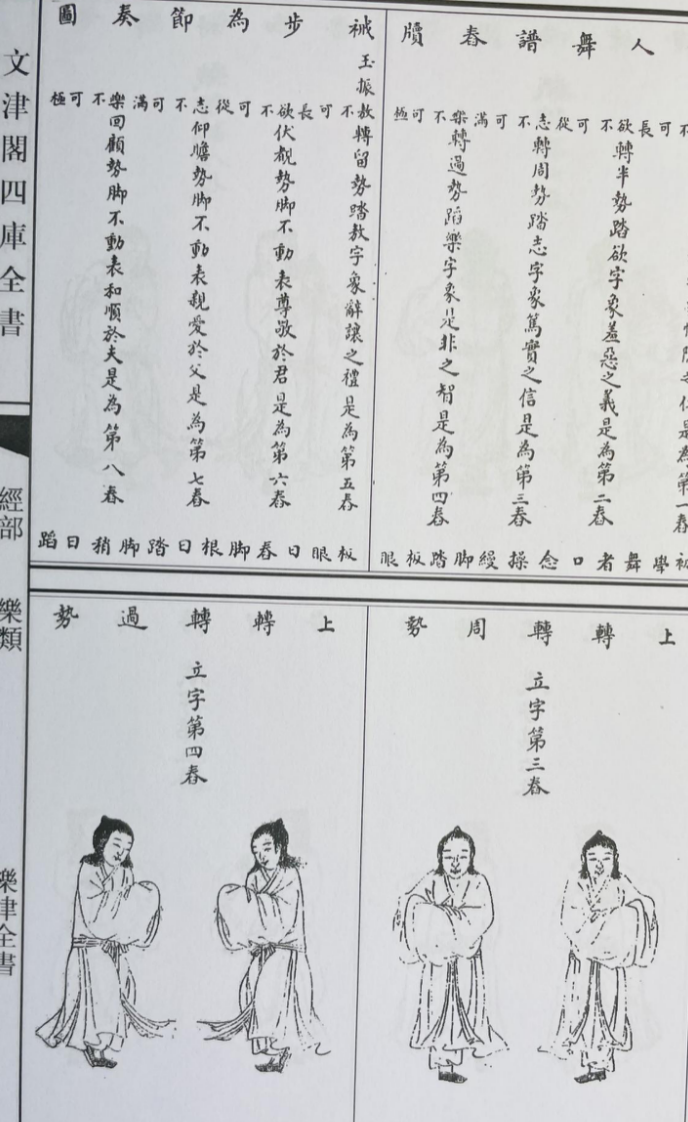 人舞譜春牘
不可長欲不可從志不可滿樂不可極
之仁是為第一春
轉半勢踏欲字象羞惡之義是為第二春
轉周勢踏志字象篤實之信是為第三春
轉過勢蹈樂字象是非之智是為第四春
學舞者口念操縵脚踏板眼
祴步為節奏圖
玉振
敖不可長欲不可從志不可滿樂不可極
轉留勢踏敖字象辭讓之禮是為第五春
伏覩勢脚不動表尊敬於君是為第六春
仰瞻勢脚不動表親愛於父是為第七春
回顧勢脚不動表和順於夫是為第八春
板眼曰春脚根曰踏脚稍曰蹈
上轉轉周勢
立字第三春
上轉轉過勢
立字第四春
文津閣四庫全書
經部
樂類
樂律全書